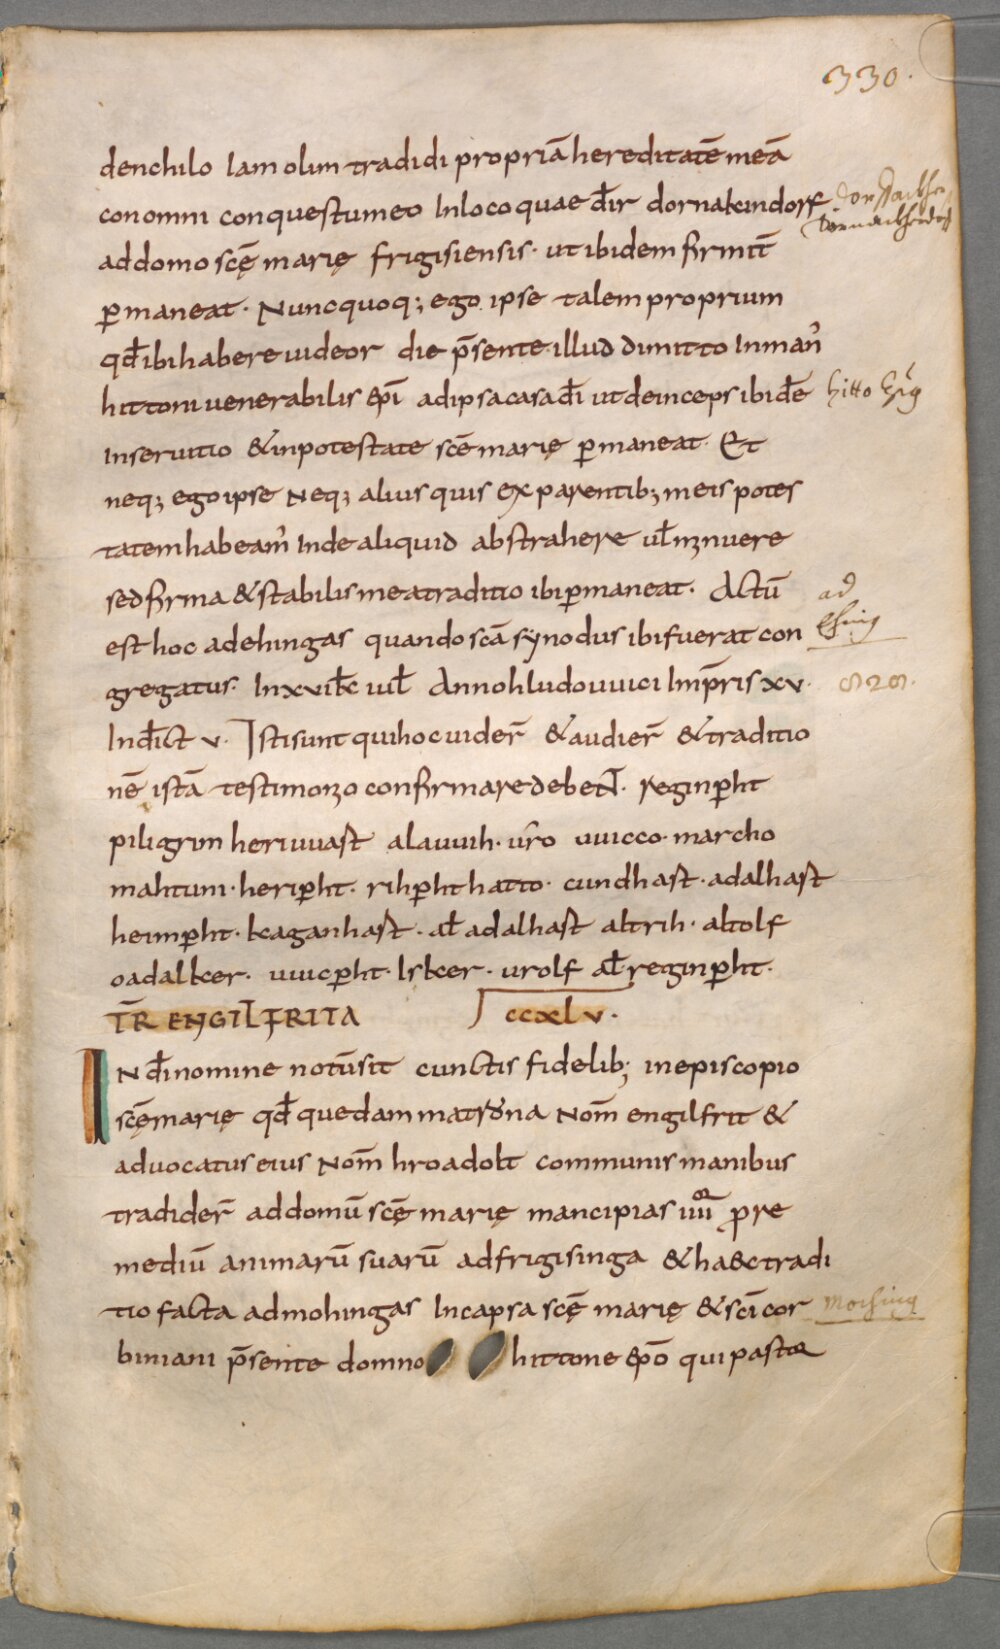 330.
denchilo Iam olim tradidi propriā hereditatē meā
con omni conquestu meo In loco quae dr̄ dornakindorf
ad domo scę̄ marię frigisiensis · ut ibidem firmit̄
ꝑmaneat · Nunc quoq; ego ipse talem proprium
qd̄ ibi habere uideor die p̄sente illud dimitto In man̓
hittoni uenerabilis ep̄i ad ipsa casa dī ut deinceps ibidē
hitto
In seruitio & in potestate scē marię ꝑmaneat · Et
neq; ego ipse Neq; alius quis ex parentib; meis potes
tatem habeam̓ Inde aliquid abstrahere ul̄ mznuere
sed firma & stabilis mea traditio ibi ꝑmaneat · Actū
ad
est hoc ad ehingas quando scā sẏnodus ibi fuerat con
Ehing
gregatus · In xvi kl̄ iul̄ Anno hludouuici Imp̄ris xv ·
828.
Ind̄ict v · Isti sunt qui hoc uider̄ & audier̄ & traditio
nē istā testimonio confirmare debeN̄ · reginꝑht
piligrim heriuuast alauuih · uro uuicco · marcho
mahtuni · heriꝑht · rihꝑht hatto · cundhast · adalhast
heimꝑht · kaganhast · al̄ adalhast altrih · altolf
oadalker · uuicꝑht · Isker · urolf al̄ reginꝑht ·
T̄R ENGILFRITA CCXLV ·
IN dī nomine notū sit cunctis fidelib; in episcopio
scę̄ marię qd̄ quedam matrona Nom̄ engilfrit &
aduocatus eius Nom̄ hroadolt communis manibus
tradider̄ ad domū scę̄ marię mancipias iiii pre
medium̄ animarū suarū ad frigisinga & haec tradi
tio facta ad mohingas In capsa scę̄ marię & sc̄i cor
Moching
biniani p̄sente domno hittone ep̄o qui pastor